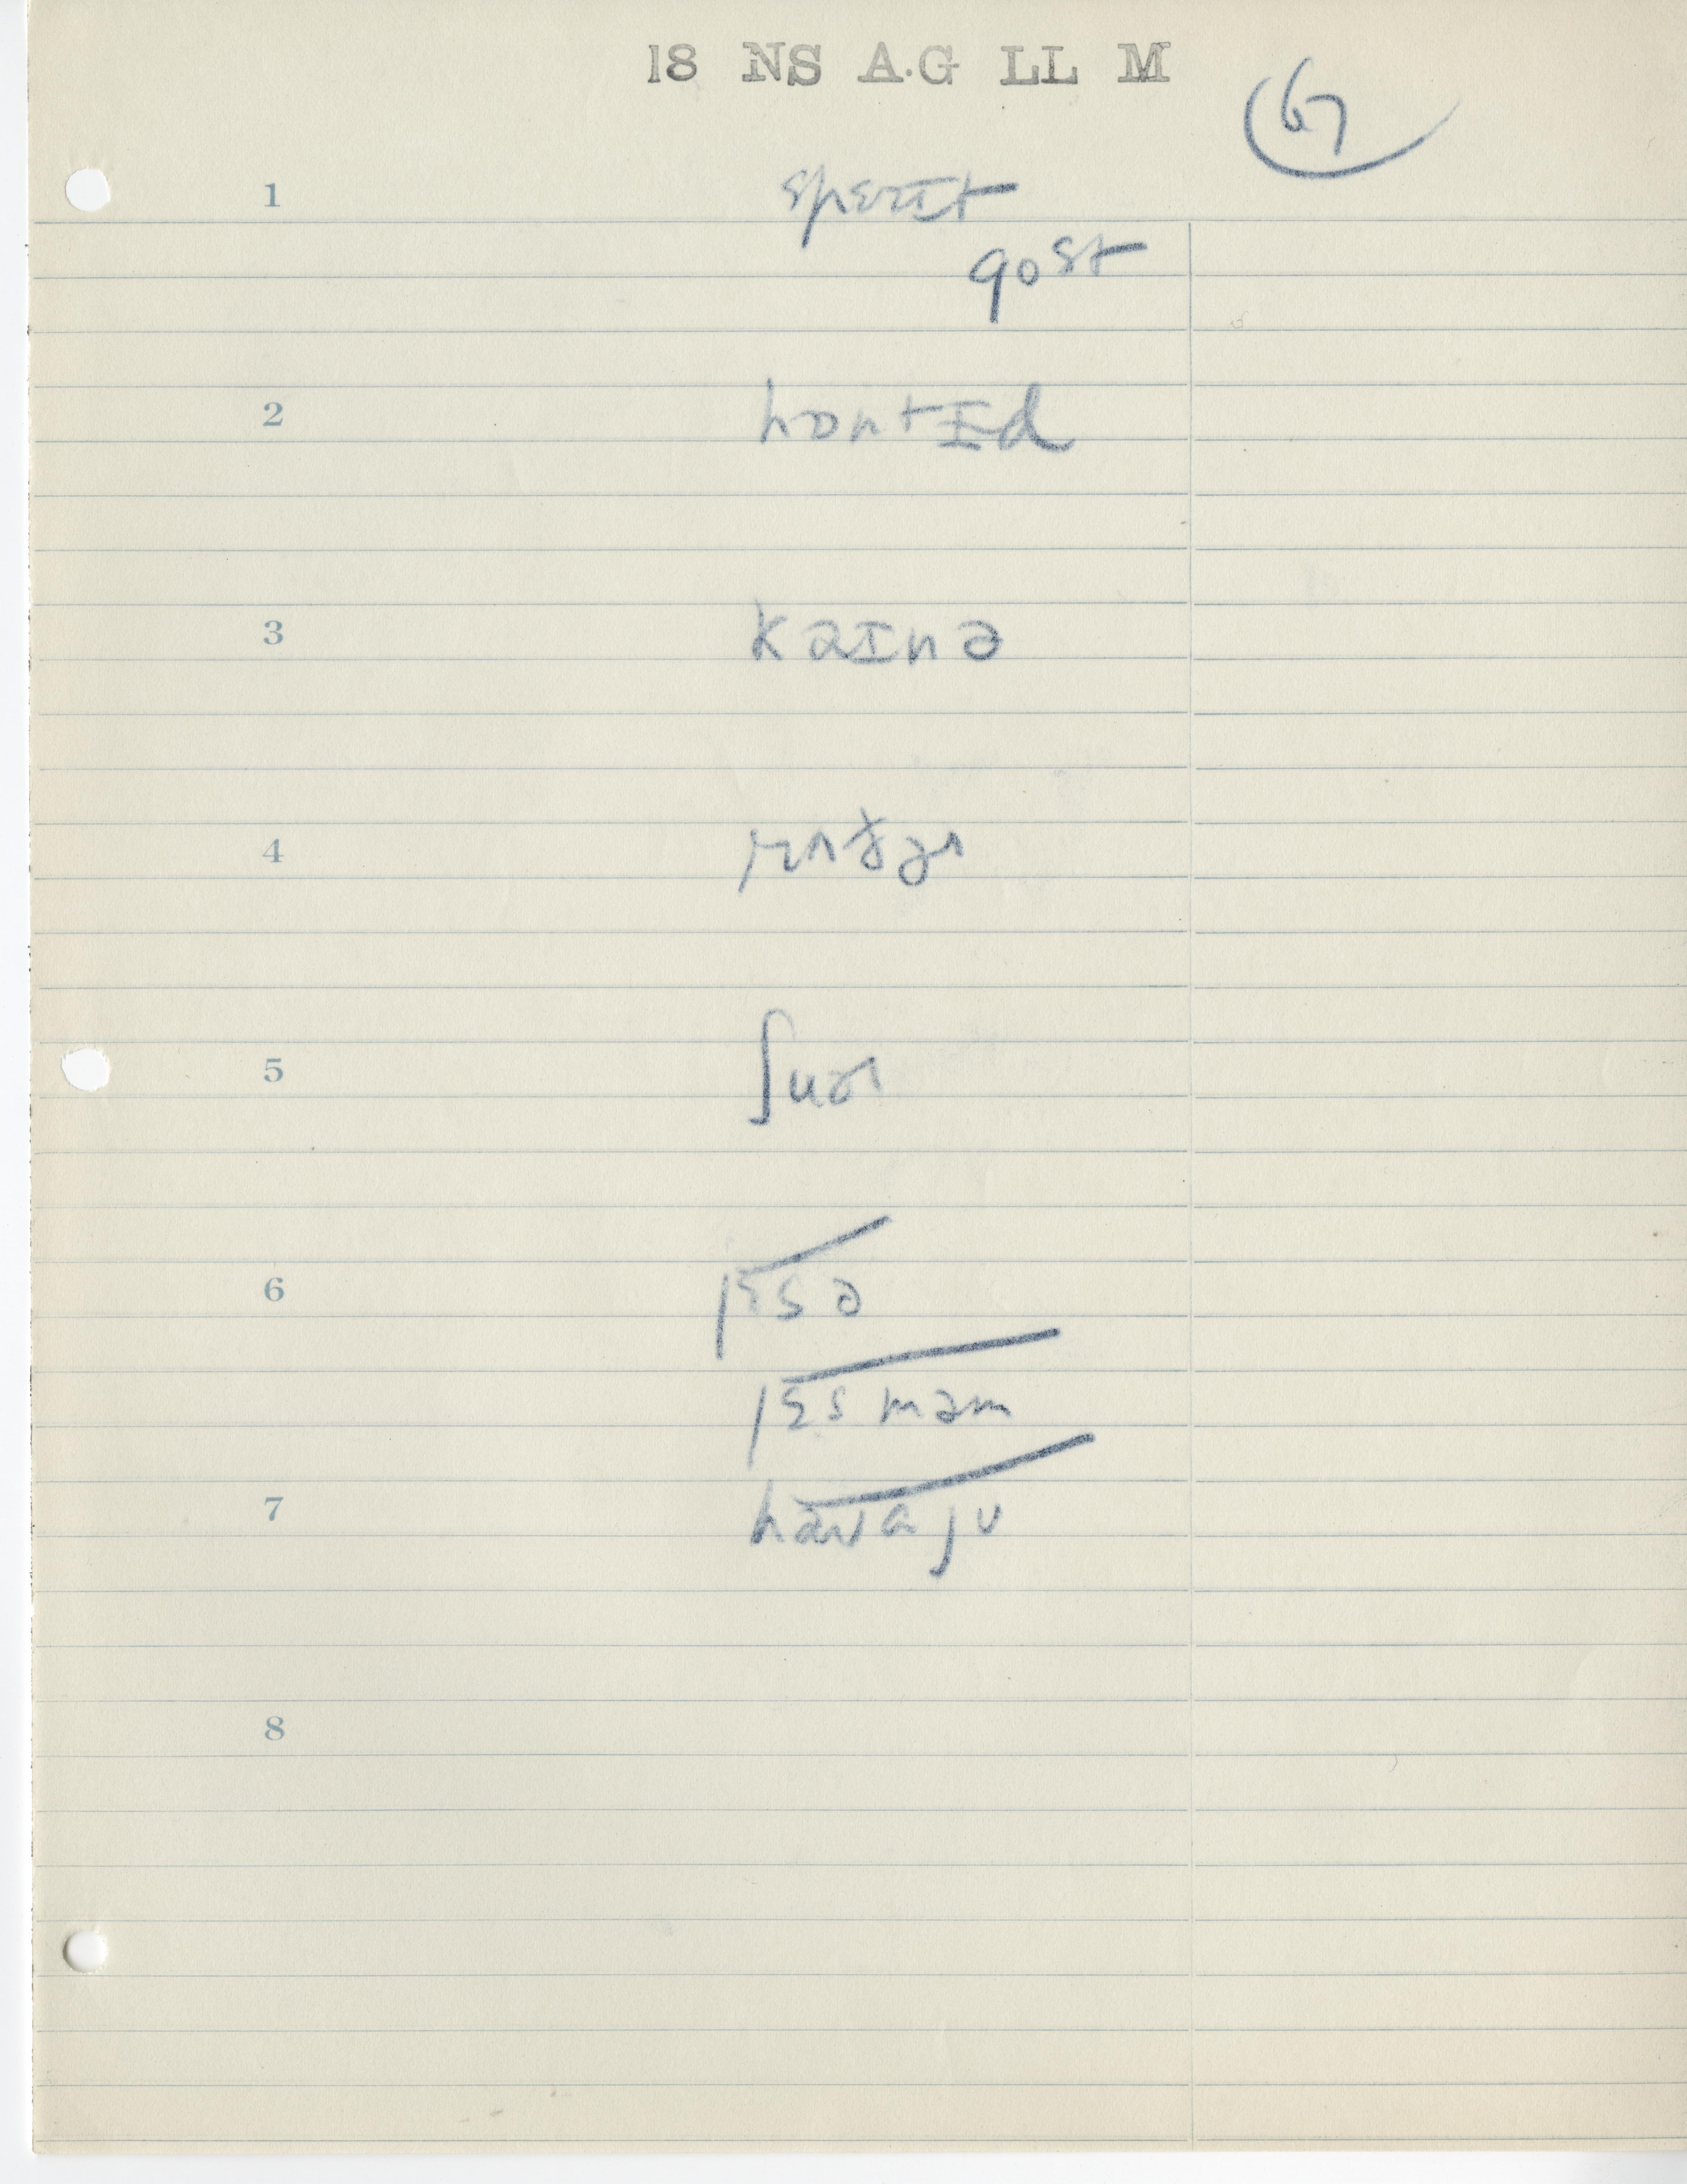 18 NS A.G LL M
67
1 spɛrɪt
gost
2 hɒntɪd
3 kaɪnə
4 rʌðər
5 ʃuər
6 jɛsə
jɛs məm
7 hawaju
8